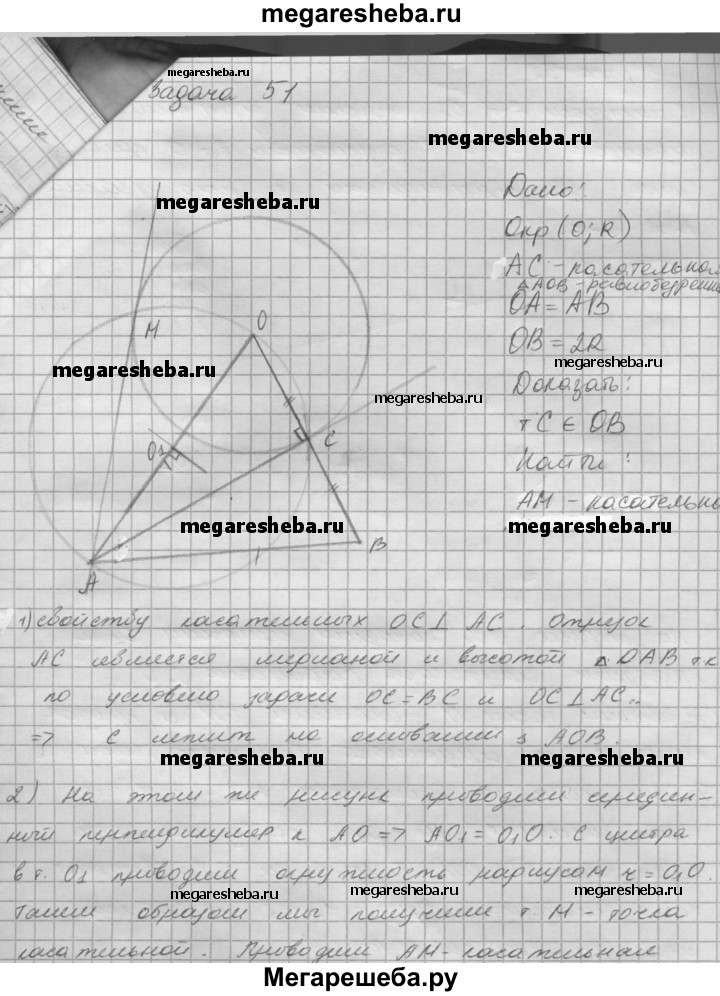 megaresheba.ru
megaresheba.ru
Задача 51
megaresheba.ru
megaresheba.ru
Дано:
Окр (O; R)
AC - касательная
△AOB - равнобедренны
OA = AB
M
O
OB = 2R
megaresheba.ru
megaresheba.ru
Доказать:
megaresheba.ru
т C ∈ OB
C
O1
Найти:
AM - касательн
megaresheba.ru
megaresheba.ru
A
B
1) свойству касательных OC⊥ AC. Отрезок
AC является медианой и высотой △ OAB т.к
по условию задачи OC = BC и OC⊥AC..
=> C лежит на основании AOB.
megaresheba.ru
megaresheba.ru
2) На этом же рисунк проводим середин-
ный перпендикуляр к AO => AO1 = O1O. С центра
в т. O1 проводим окружность радиусом r = O1O.
megaresheba.ru
megaresheba.ru
megaresheba.ru
Таким образом мы получим т. M - точка
касательной. Проводим AM - касательная
Мегарешеба.ру